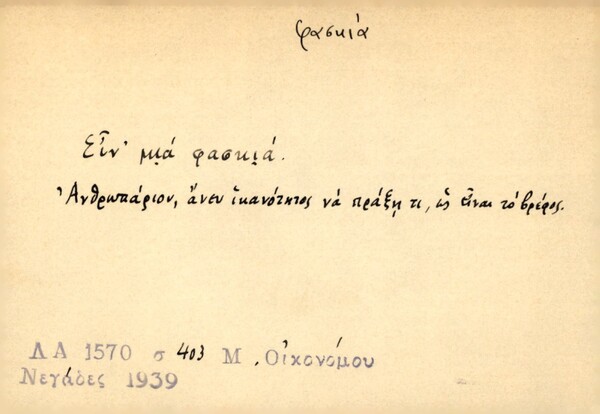 φασκιά
Εἶν' μιά φασκιά.
Ἀνθρωπάριον, ἄνευ ἱκανότητος νά πράξῃ τι, ὡς εἶναι τό βρέφος.
Λ Α 1570 σ 403 Μ. Οἰκονόμου
Νεγάδες 1939